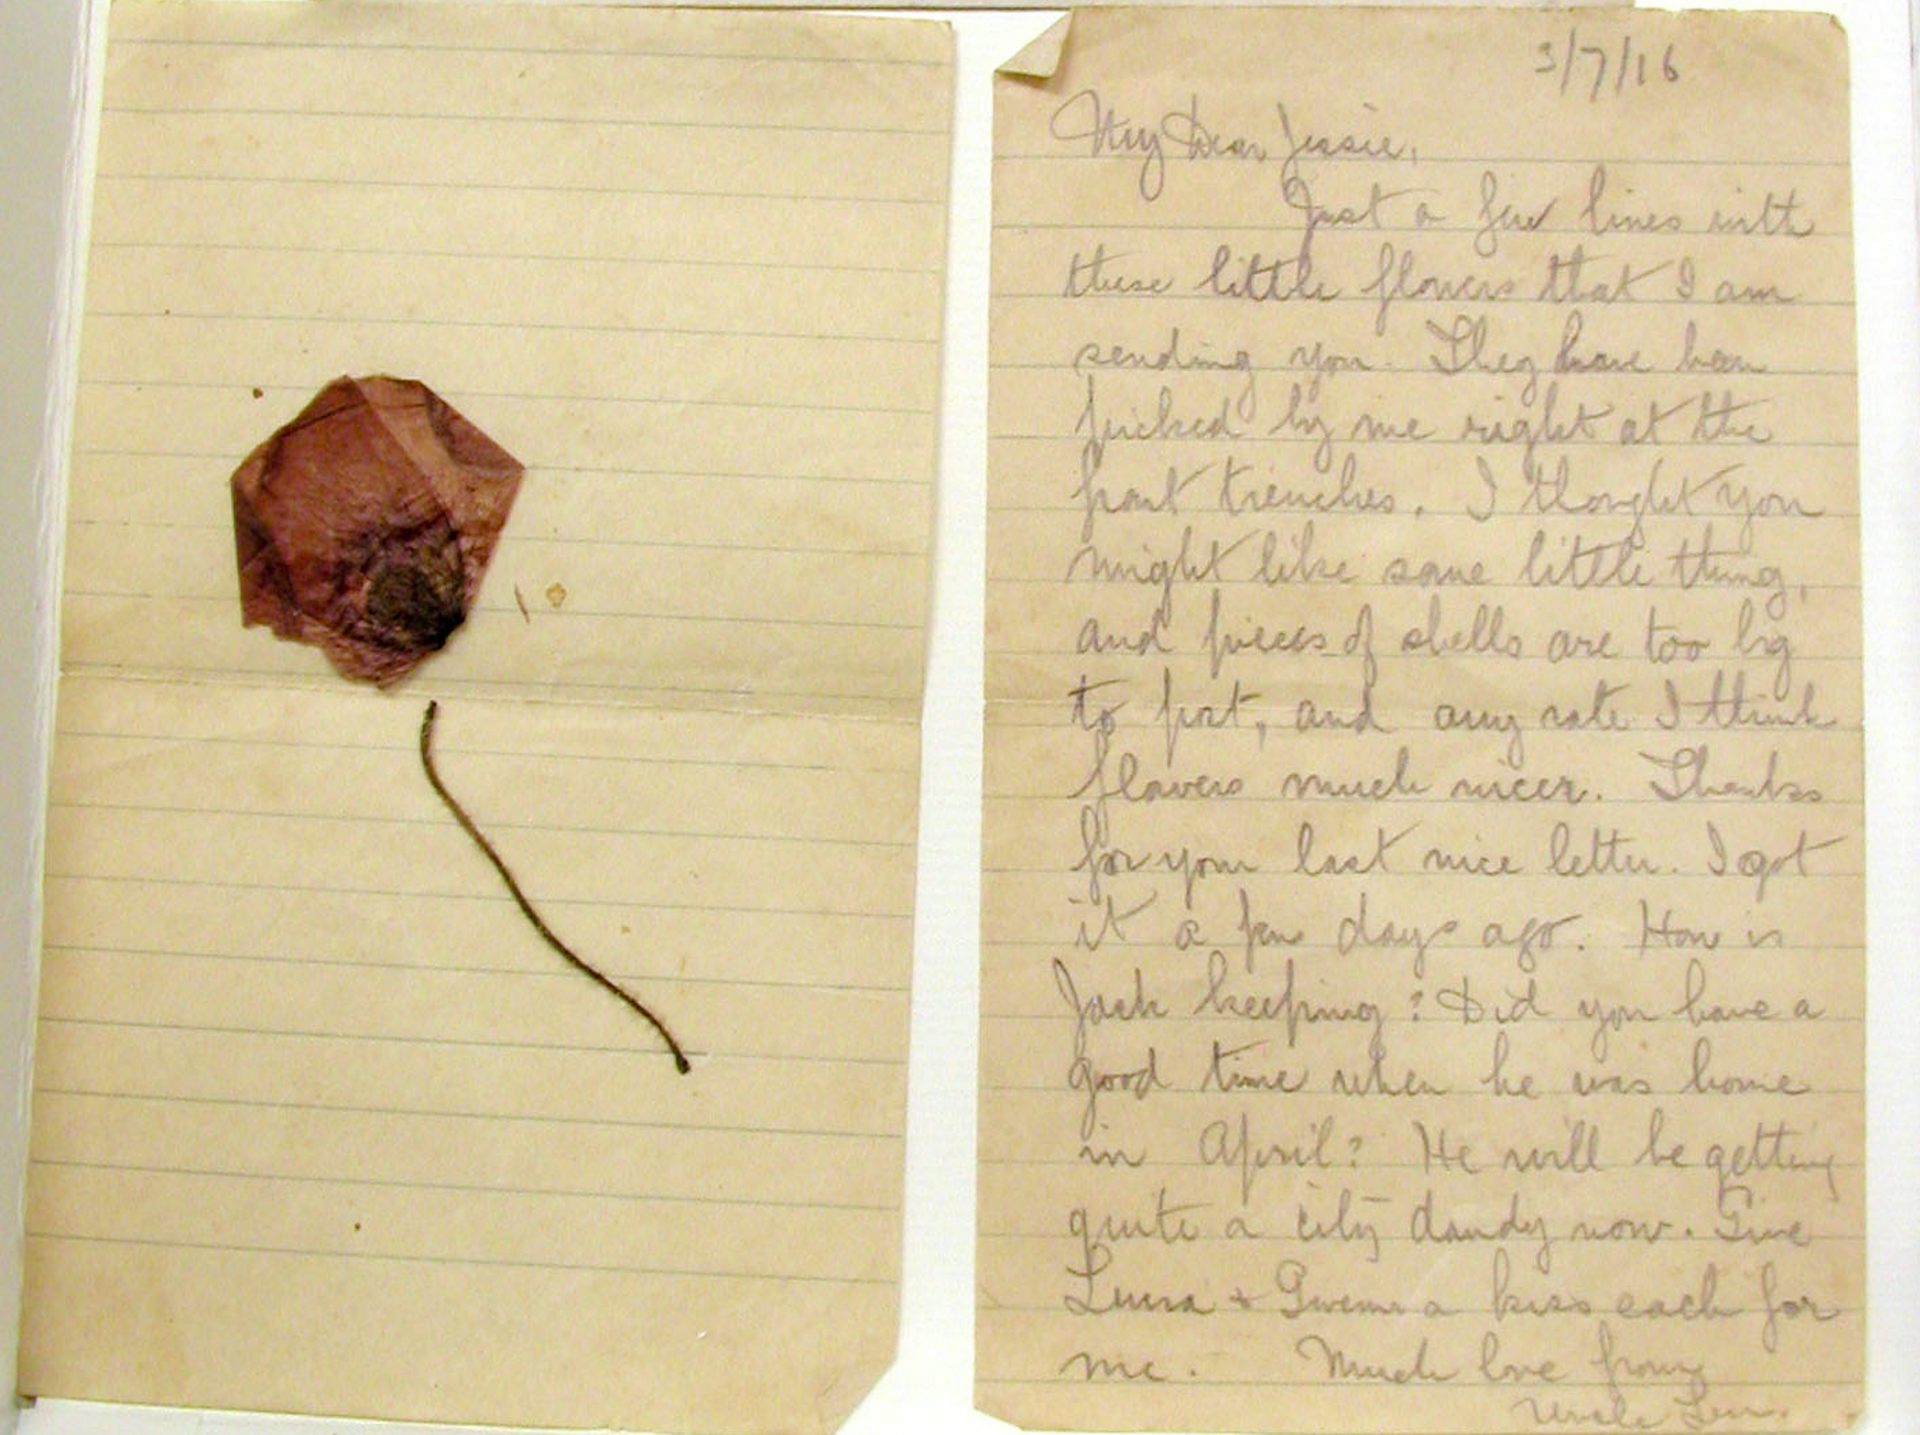 3/7/16
My Dear Jessie,
Just a few lines with
these little flowers that I am
sending you. They have been
picked by me right at the
front trenches. I thought you
might like some little thing,
and pieces of shells are too big
to post, and any rate I think
flowers much nicer. Thanks
for your last nice letter. I got
it a few days ago. How is
Jack keeping? Did you have a
good time when he was home
in April? He will be getting
quite a city dandy now. Give
& a kiss each for
me. Much love from
Uncle Len.